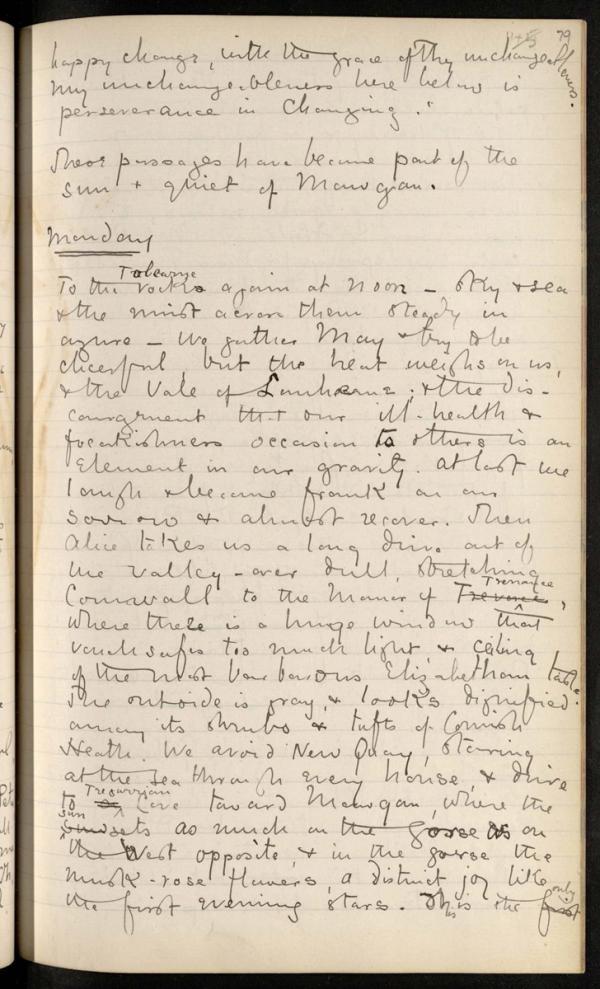 145 79
happy change, with the grace of Thy unchangeableness.
my unchangeableness here below is
perseverance in Changing."
These passages have become part of the
sun & quiet of Mawgan.
Monday
Tolcarne
To the rocks again at Noon — sky & sea
& the mist across them steady in
azure — We gather May & try to be
cheerful, but the heat weighs on us,
& the Vale of Lanherne; & the dis-
couragement that our ill-health &
freakishness occasion to others is an
Element in our gravity. At last we
laugh & become frank on our
sorrow & almost recover. Then
Alice takes us a long drive out of
the Valley — over dull, stretching
Trerrance
Cornwall to the Manor of Trevance,
where there is a huge window that
vouchsafes too much light, & ceiling
of the most barbarous Elizabethan taste.
The outside is gray, & looks dignified
among its shrubs & tufts of Cornish
Heath. We avoid New Quay, staring
at the sea through every house, & drive
Tregurrian
to Cove toward Mawgan, where the
sun
sets as much on the gorse as on
the West opposite, & in the gorse the
musk-rose flowers, a distinct joy like
only
the first evening stars. This is the first